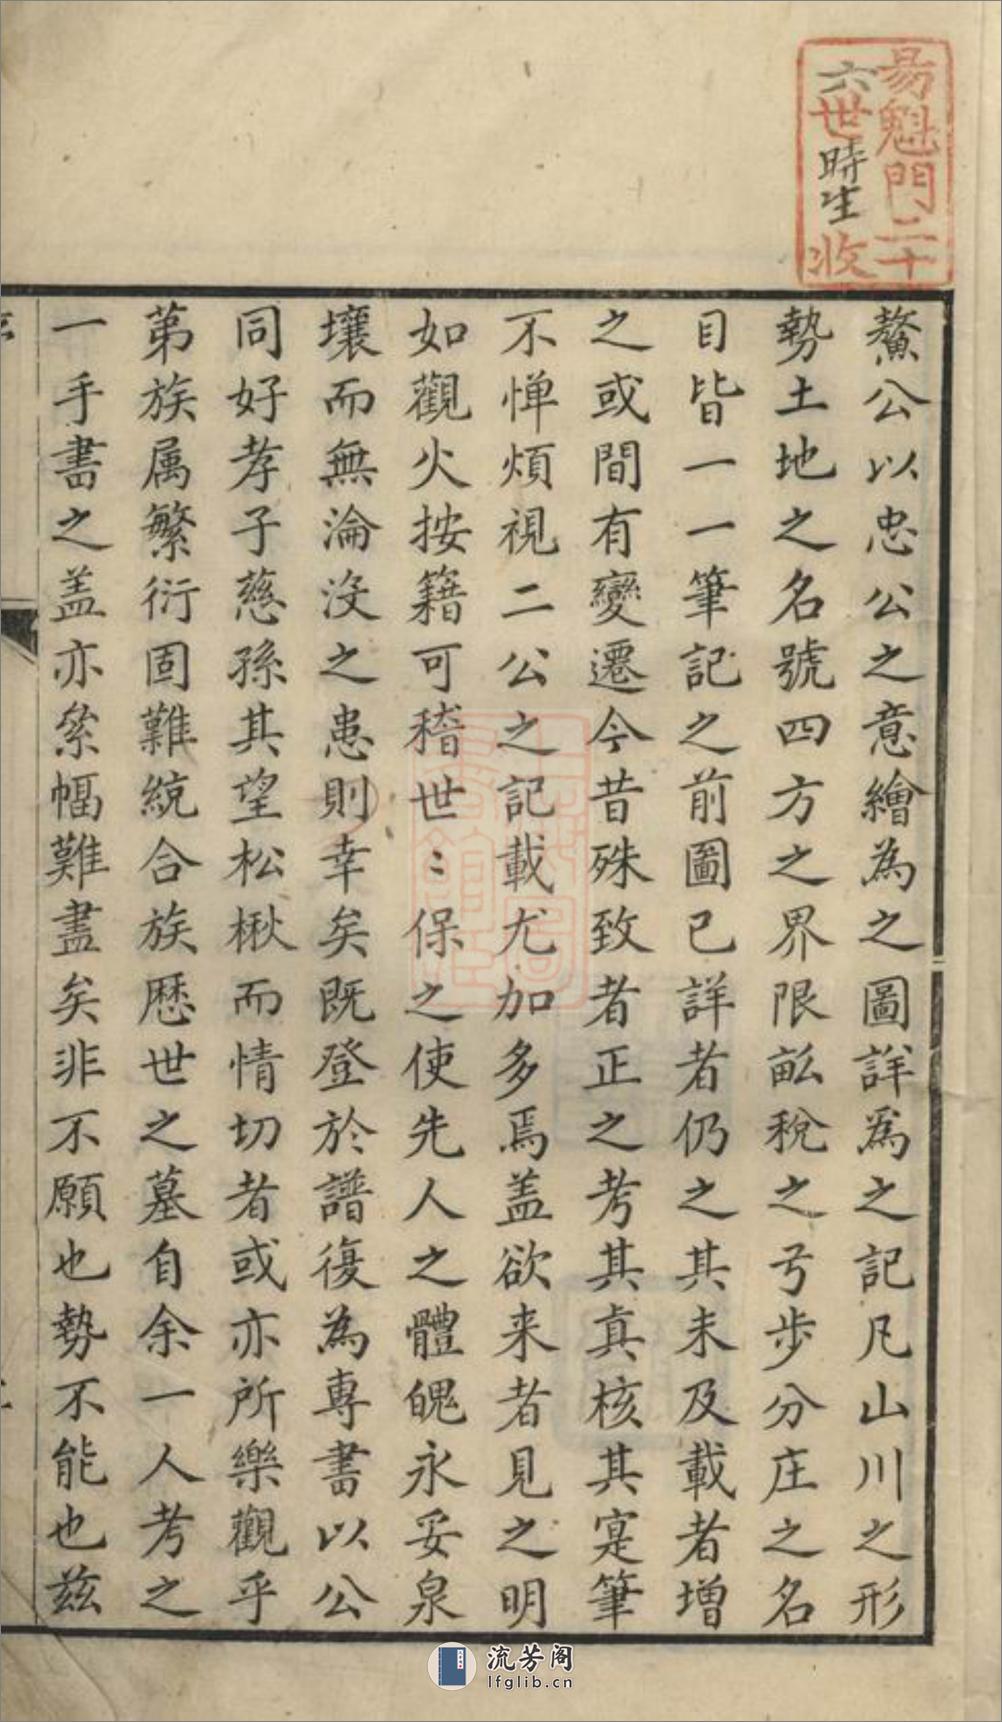 易魁門二十
六世時生收
鰲公以忠公之意繪為之圖詳為之記凡山川之形
勢土地之名號四方之界限畆稅之弓步分庄之名
目皆一一筆記之前圖已詳者仍之其未及載者增
之或間有變遷今昔殊致者正之考其真核其寔筆
不惮煩視二公之記載尤加多焉盖欲来者見之明
如觀火按籍可稽世〻保之使先人之體魄永妥泉
壤而無淪沒之患則幸矣既登於譜復為專書以公
同好孝子慈孫其望松楸而情切者或亦所樂觀乎
第族属繁衍固難統合族歷世之墓自余一人考之
一手書之盖亦絫幅難盡矣非不願也勢不能也兹
流芳阁
lfglib.cn